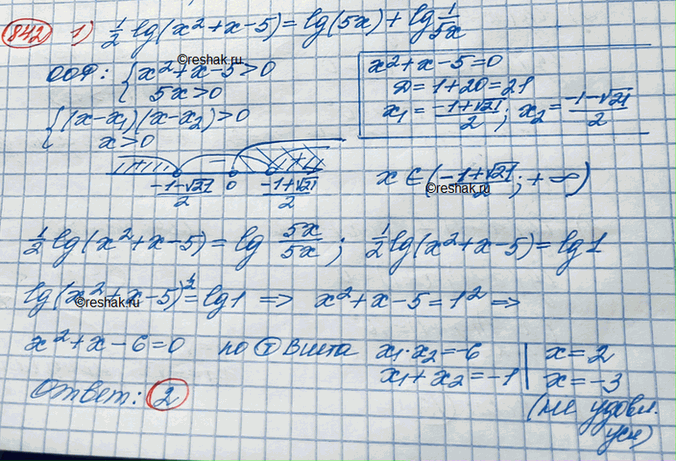 842 1) 1/2 lg(x²+x-5) = lg(5x) + lg 1/5x
©reshak.ru
ООФ: { x²+x-5>0
5x>0
{ (x-x₁)(x-x₂)>0
x>0
x²+x-5=0
D=1+20=21
x₁= (-1+√21)/2; x₂= (-1-√21)/2
+ - +
(-1-√21)/2 0 (-1+√21)/2
x∈((-1+√21)/2; +∞)
©reshak.ru
1/2 lg(x²+x-5) = lg 5x/5x; 1/2 lg(x²+x-5) = lg1
lg(x²+x-5)^1/2 = lg1 => x²+x-5=1² =>
©reshak.ru
x²+x-6=0 по Т Виета x₁·x₂=-6 | x=2
x₁+x₂=-1 | x=-3
(не удовл.
усл)
Ответ: 2